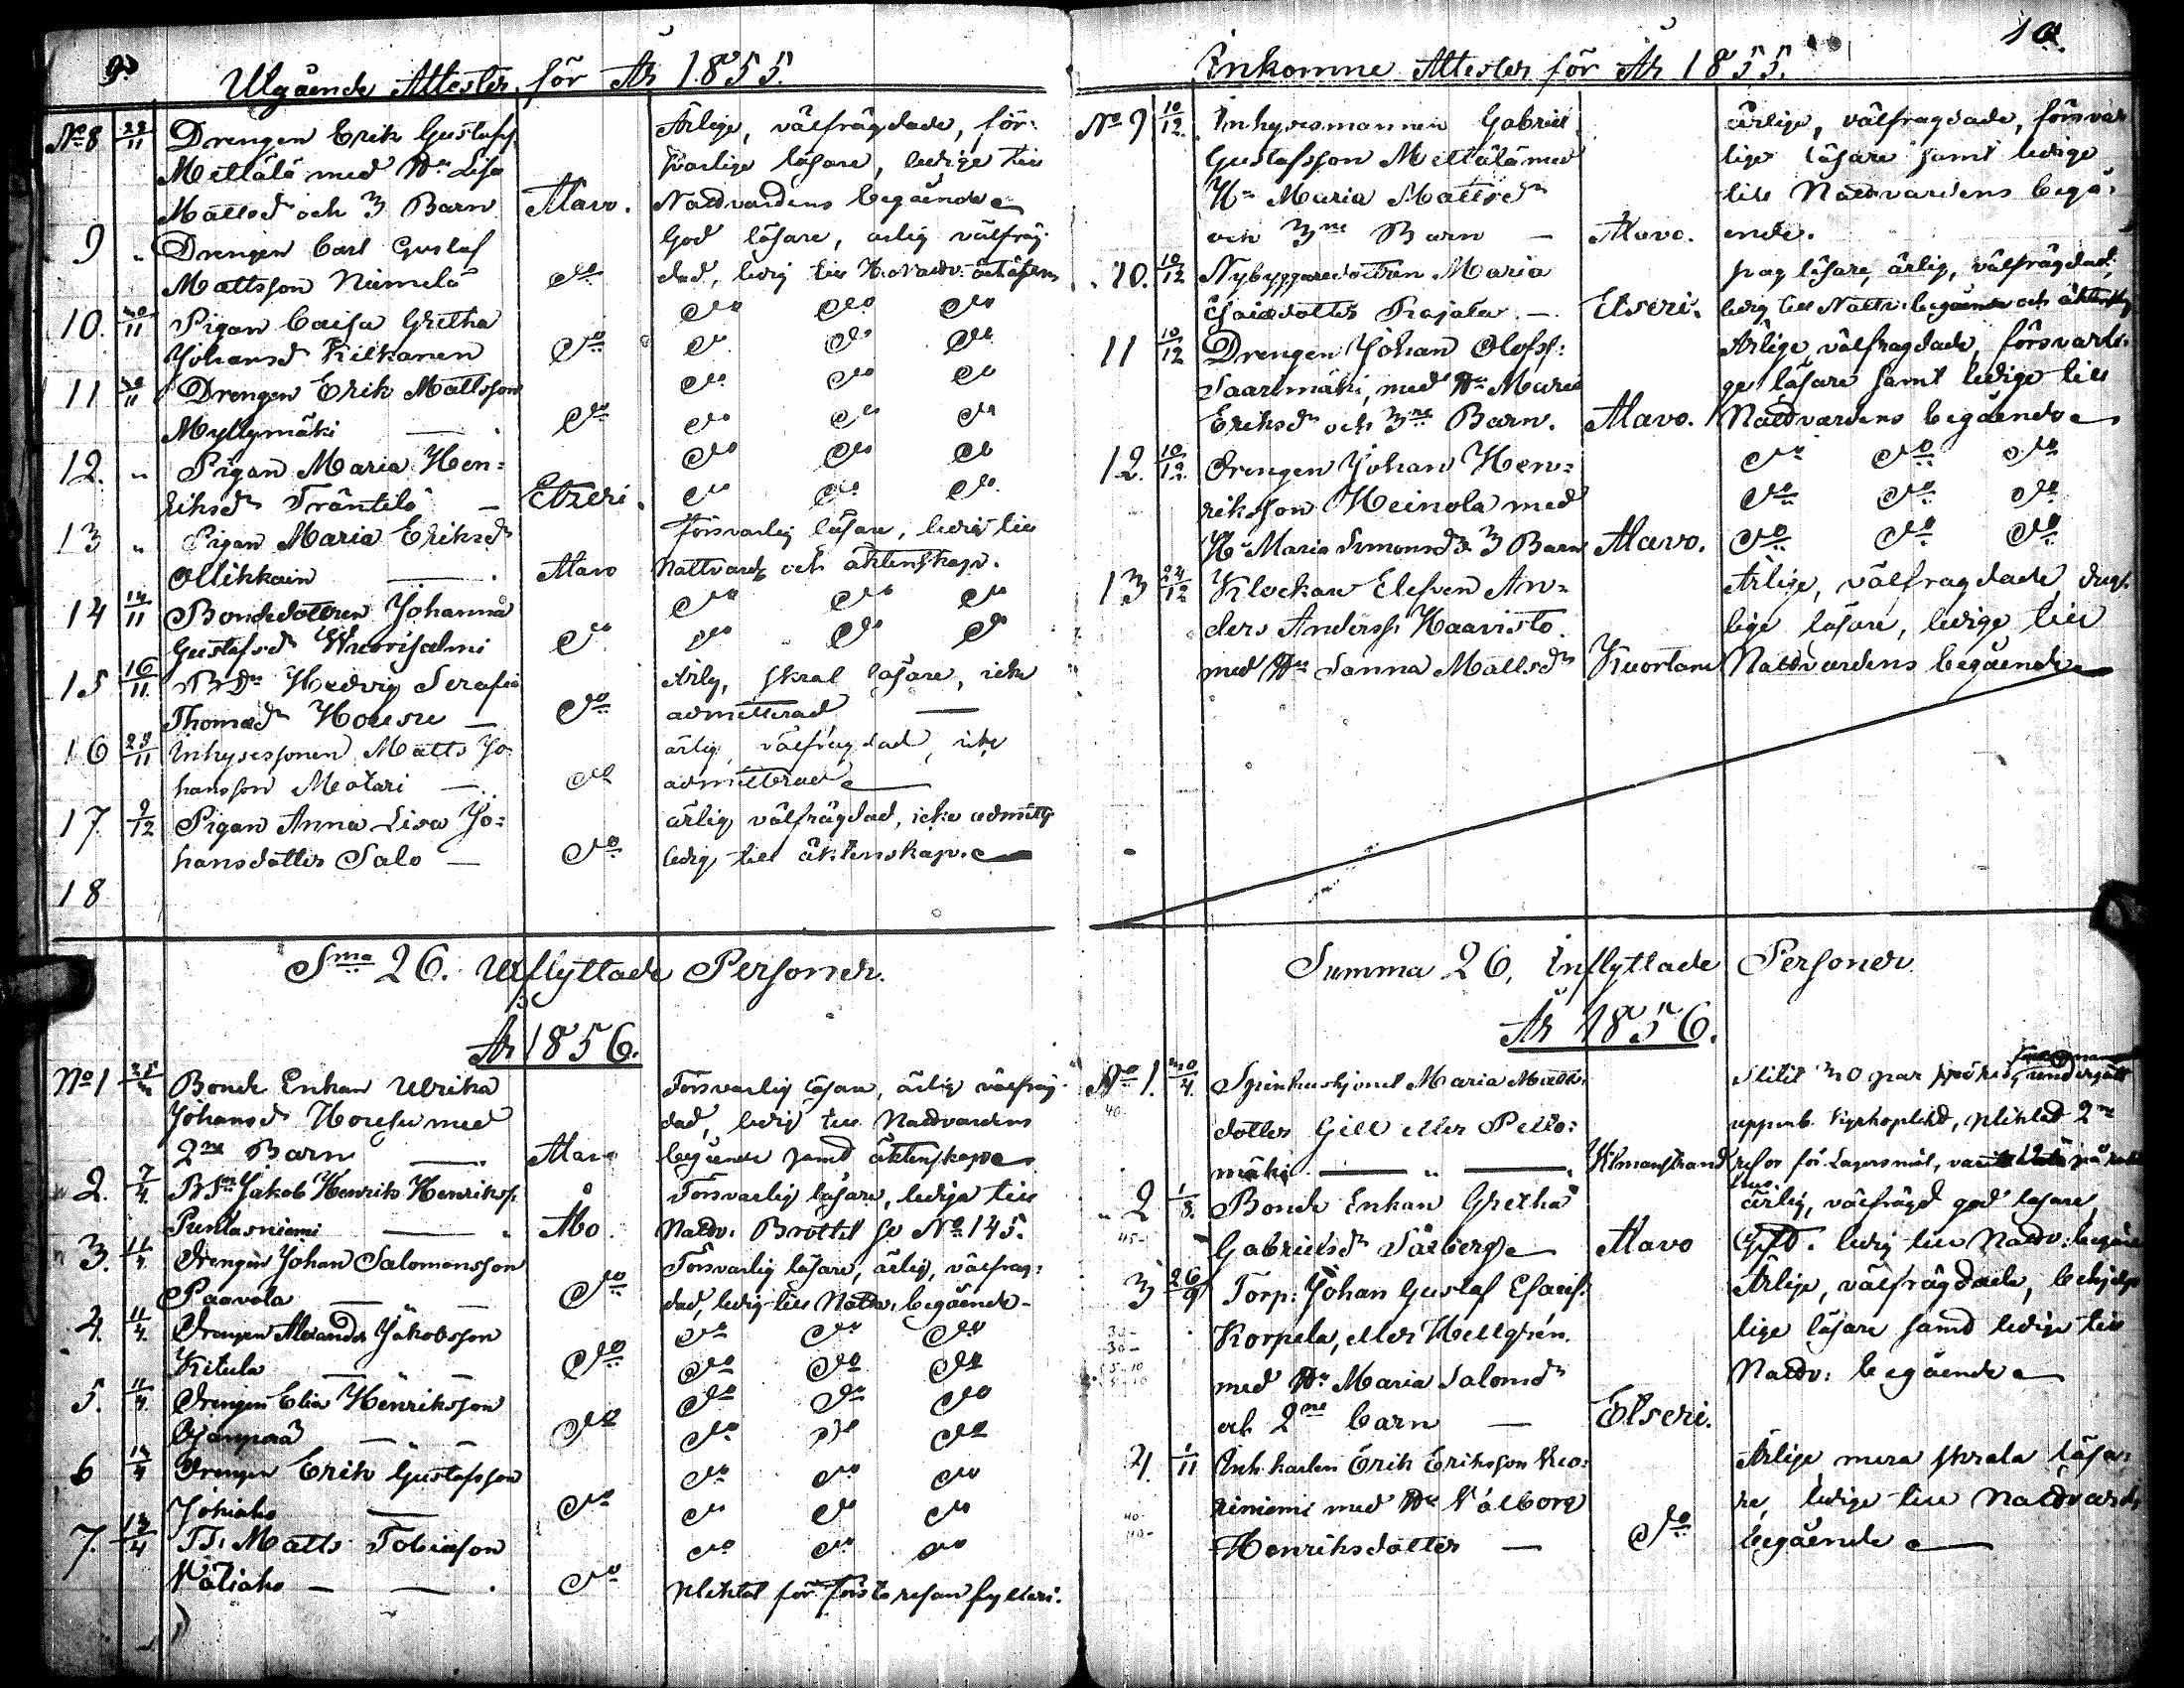 9
Utgående Attester för År 1855.
No 8 28/11 Drengen Erik Gustafss.
Mettälä med Hu Lisa
Mattsdr och 3 Barn Alavo.
Ärlige, välfrägdade, för-
svarlige läsare, ledige till
Nattvardens begående
9 " Drengen Carl Gustaf
Mattsson Niemelä do
God läsare, ärlig välfräg-
dad, ledig till
10. 11 Pigan Caisa Gretha
Johansdr Kilkanen do
do do do
do do do
11 11 Drengen Erik Mattsson
Myllymäki — do
do do do
do do do
12. " Pigan Maria Hen-
riksdr Träntelä — Etseri.
do do do
do do do
13 " Pigan Maria Eriksdr
Ollikkain — Alavo
försvarlig läsare, ledig till
Nattvard och äktenskap.
14 14/11 Bondedottren Johanna
Gustafsdr Wuorisalmi do
do do do
do do do
15 16/11 BDn Hedvig Serafia
Thomasdr Houru — do
Ärlig, skral läsare, icke
admitterad —
16 28/11 Inhysessonen Matts Jo-
hansson Matari — do
ärlig, välfrägdad, icke
admitterad
17. 9/12 Pigan Anna Lisa Jo-
hansdotter Salo — do
ärlig välfrägdad, icke admitt.
ledig till äktenskap.
18
Sma 26. Utflyttade Personer.
År 1856.
No 1 Bonde Enkan Ulrika
Johansd med
2ne Barn — Alavo
Försvarlig läsare, ärlig välfräg-
dad, ledig till Nattvardens
begående samt äktenskap
2. 7/4 BSn Jakob Henrik Henrikss.
Puntasniemi — Åbo.
Försvarlig läsare, lediga till
Nattv. Brottet se No 145.
3. 11/4 Drengen Johan Salomonsson
Paavola — do
Försvarlig läsare, ärlig, välfräg-
dad, ledig till Nattv. begående
4. 11/4. Drengen Alexander Jakobsson
Kitula — do
do do do
do do do
5. 11/4 Drengen Elias Henriksson
— do
do do do
do do do
6 14/4 Drengen Erik Gustafsson
— do
do do do
do do do
7. 13/4 TS. Matts Tobiasson
Väliaho — do
do do do
Pliktat för första resan fylleri.
10.
Inkomne Attester för År 1855.
No 9 10/12. Inhysesmannen Gabriel
Gustafsson Mettälä med
Hu Maria Mattsdr
och 3ne Barn — Alavo.
ärlige, välfrägdade, försvar
lige läsare samt ledige
till Nattvardens begå-
ende.
10. 10/12 Nybyggaredottren Maria
Esaiedotter Rajala. — Etseri.
svag läsare, ärlig, välfrägdad,
ledig till Nattv: begående och äktensk
11 10/12 Drengen Johan Olofss:
Saarimäki, med Hu Maria
Eriksdr och 3ne Barn. Alavo.
Ärlige, välfrägdade, försvarli-
ge läsare samt ledige till
Nattvardens begående
12. 10/12. Drengen Johan Hen-
riksson Heinola med
Hu Maria Simonsdr 3 Barn Alavo.
do do do
do do do
do do do
13 24/12 Klockare Eleven An-
ders Anderss. Haavisto
med Hu Sanna Mattsdr Kuortane
Ärlige, välfrägdade,
lige läsare, ledige till
Nattvardens begående
Summa 26, Inflyttade Personer
År 1856.
No 1. Spinhushjonet Maria Matts-
dotter Gill eller Pello-
mäki —
slitit par spö undergått
uppenb. kyrkoplikt, pliktad 2ne
resor för Lägersmål,
2 1/8. Bonde Enkan Gretha
Gabrielsdr Alavo
ärlig, välfrägd god läsare,
ledig till Nattv: begå
3 26/9 Torp: Johan Gustaf Esaiss:
Korpela, eller Hellgrén
med Hu Maria Salomdr
och 2ne barn — Etseri.
Ärlige, välfrägdade, behjelp
lige läsare samt ledige till
Nattv: begående
4. 1/11 Inh.karlen Erik Eriksson Kuo-
riniemi med Hu Valborg
Henriksdotter — do
Ärlige, mera skrala läsa-
re, ledige till Nattvards
begående